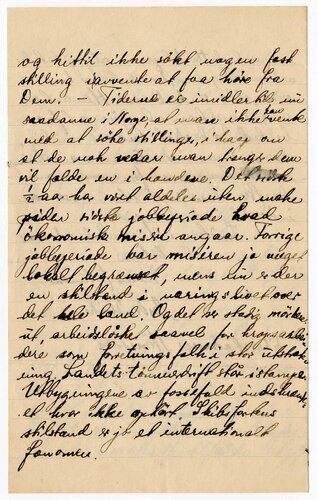 og hittil ikke søkt nogen fast
stilling i avvente at faa høre fra
Dem. — Tiderne er imidlertid nu
saadanne i Norge, at man ikke kan vente
med at søke stillinger, i haap om
at de nok ved at man trenger dem
vil falde en i hændene. Det siste
½ aar har vist aldeles uten make
siden siste jobbeperiode hvad
økonomisk misere angaar. Forrige
jobbeperiode var miseren jo meget
lokalt begrænset, mens nu er der
en stilstand i næringslivet over
det hele land. Og det ser stadig mørkere
ut, arbeidsløshet saavel for kropsarbei
dere som forretningsfolk i stor utstræk
ning. Landets trælastdrift står i stampe.
Utbygningene av fossefald
et hvor ikke ophørt. Skibsfartens
stilstand er jo et internationalt
fænomen.